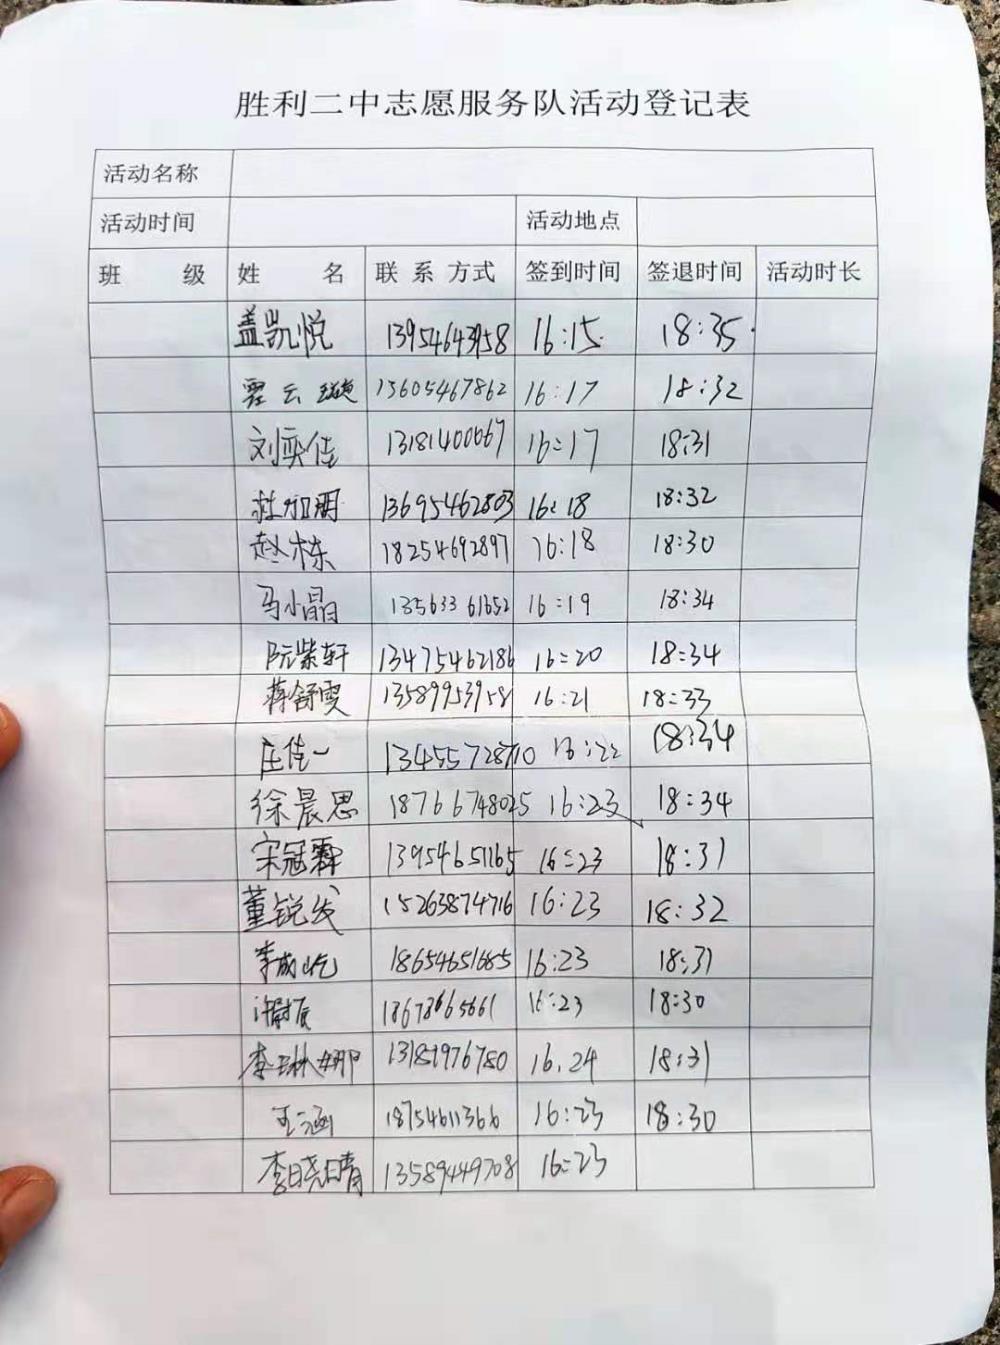 胜利二中志愿服务队活动登记表
活动名称
活动时间 活动地点
班 级 姓 名 联 系 方式 签到时间 签退时间 活动时长
盖凯悦 13954643958 16:15 18:35
云璇 15605467862 16:17 18:32
刘奕佳 13181400667 16:17 18:31
13695462803 16:18 18:32
赵栋 18254692897 16:18 18:30
马小晶 13563361652 16:19 18:34
阮紫轩 13475462186 16:20 18:34
蒋舒雯 13589953958 16:21 18:33
庄佳一 13455728710 16:22 18:34
徐晨思 18766748025 16:23 18:34
宋冠霖 13954651165 16:23 18:31
董锐 15263874716 16:23 18:32
李成屹 18654651685 16:23 18:31
18678665661 16:23 18:30
李琳娜 13181976780 16.24 18:31
王涵 18754611366 16:23 18:30
李晓晴 13589449708 16:23